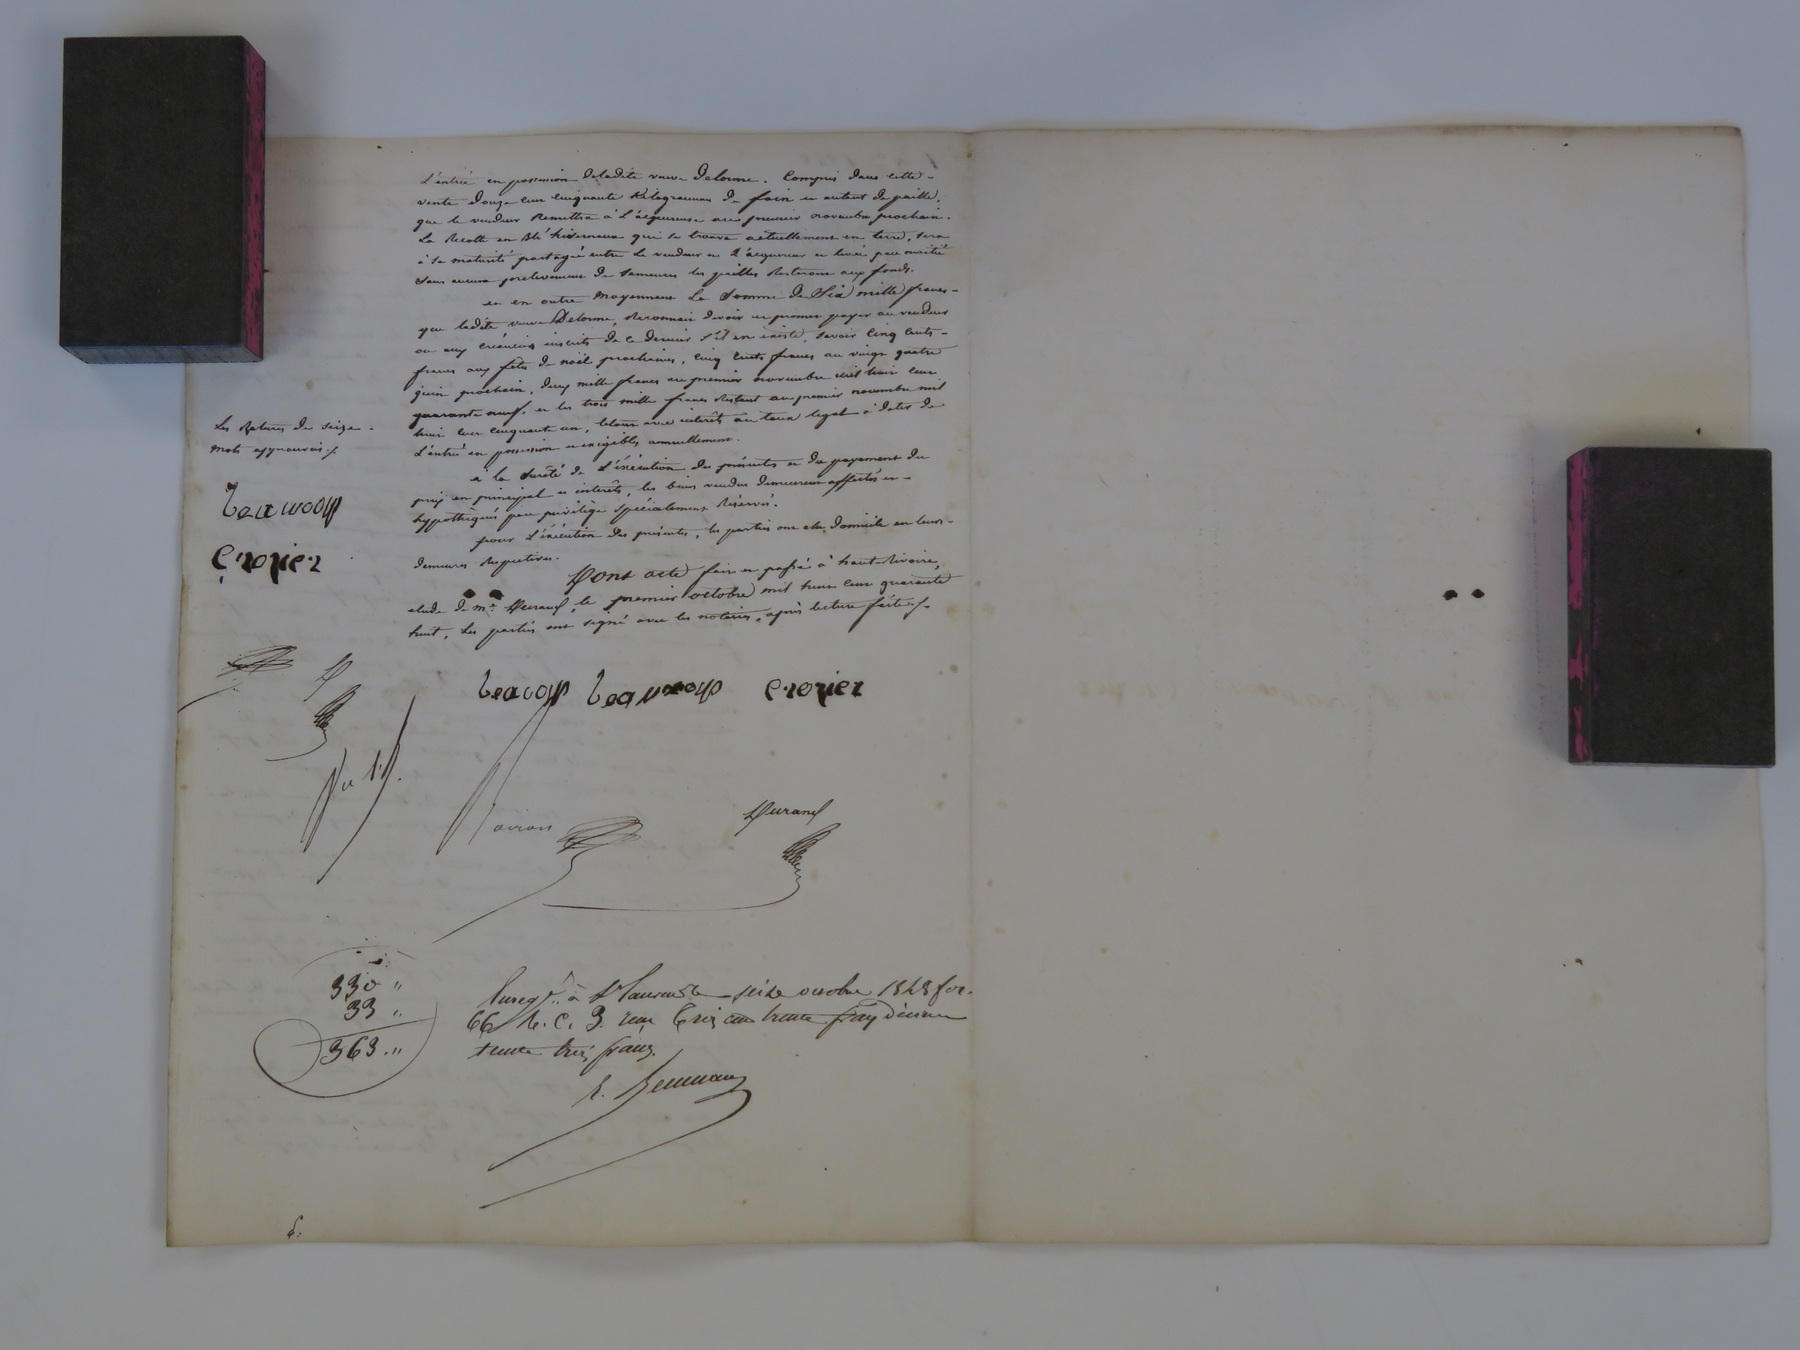 L'entrée en possession deladite veuve Delorme. Compris dans cette
vente douze cent cinquante Kilogrammes de foin et autant de paille,
que le vendeur Remettra à L'acquereuse au premier novembre prochain.
La Recolte en Blé hivernaux qui se trouve actuellement en terre, sera
à sa maturité partagée entre Le vendeur et L'acquereur et livré par moitié
Sans aucun prelevement de semences les pailles Resteront aux fonds.
et en outre moyennant La Somme de Six mille francs
que ladite veuve Delorme, Reconnait devoir et promet payer au vendeur
ou aux créanciers inscrits de ce dernier s'il en existe, savoir Cinq Cents
francs aux fêtes de noël prochaines, Cinq Cents francs au vingt quatre
juin prochain, deux mille francs au premier novembre mil huit cent
quarante neuf, et les trois mille francs Restant au premier novembre mil
huit cent cinquante un, letout avec intérêts au taux légal à dater de
L'entrée en possession et exigibles annuellement.
Les Ratures de seize
mots approuvées ./.
à la Sureté de L'éxécution des présentes et du payement du
prix en principal et intérêts, les biens vendus demeurent affectés et
hypothéqués par privilège spécialement Réservé.
pour L'éxécution des présentes, les parties ont élu domicile en leurs
demeures Respectives.
Beaucoup
Crozier
Dont acte fait et passé à haut-Rivoire,
etude de me. Durand, le premier octobre mil huit cent quarante
huit, Les parties ont signé avec les notaires, après lecture faite ./.
Beaucoup Crozier
D
Durand
330 "
33 "
363 . "
Enregté. à St Laurent le seize octobre 1848 fol.
66 R. C. 3. reçu trois cent trente francs décime
trente trois francs.